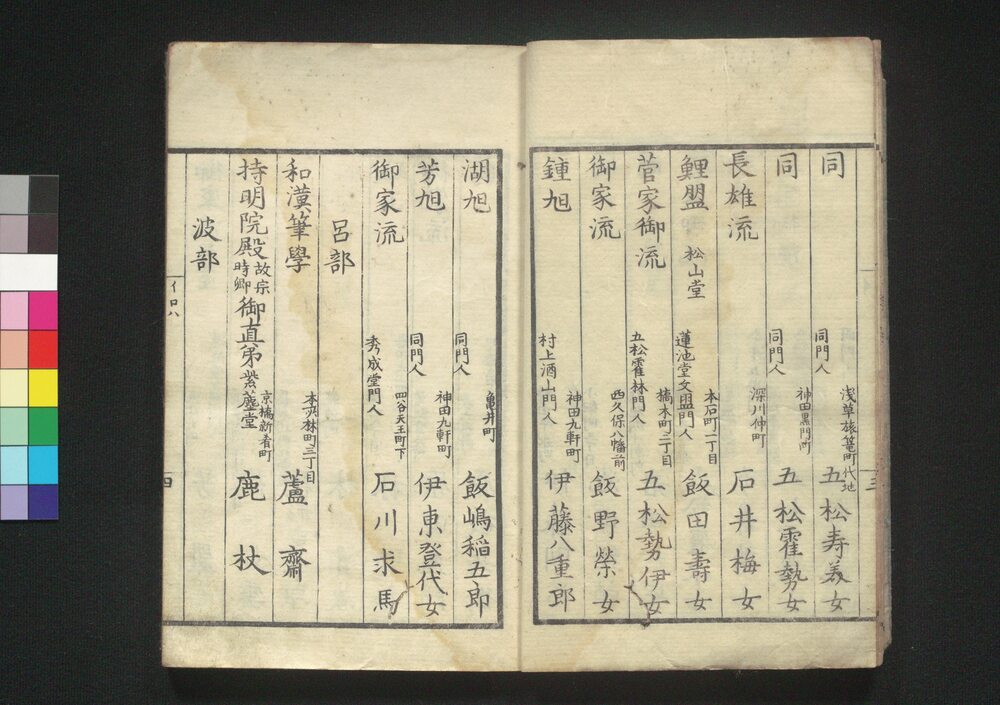 同 同門人 浅草旅篭町代地 五松寿美女
同 同門人 神田黒門町 五松霍勢女
長雄流 深川仲町 石井梅女
鯉盟 松山堂 蓮池堂文盟門人 本石町一丁目 飯田壽女
菅家御流 五松霍林門人 橘本町二丁目 五松勢伊女
御家流 西久保八幡前 飯野榮女
鍾旭 村上酒山門人 神田九軒町 伊藤八重郎
三
湖旭 同門人 亀井町 飯嶋稲五郎
芳旭 同門人 神田九軒町 伊東登代女
御家流 秀成堂門人 四谷天王町下 石川求馬
呂部
和漢筆學 本材木町三丁目 蘆齋
持明院殿故宗時卿御直弟紫塵堂 京橋新肴町 鹿杖
波部
イロハ 四